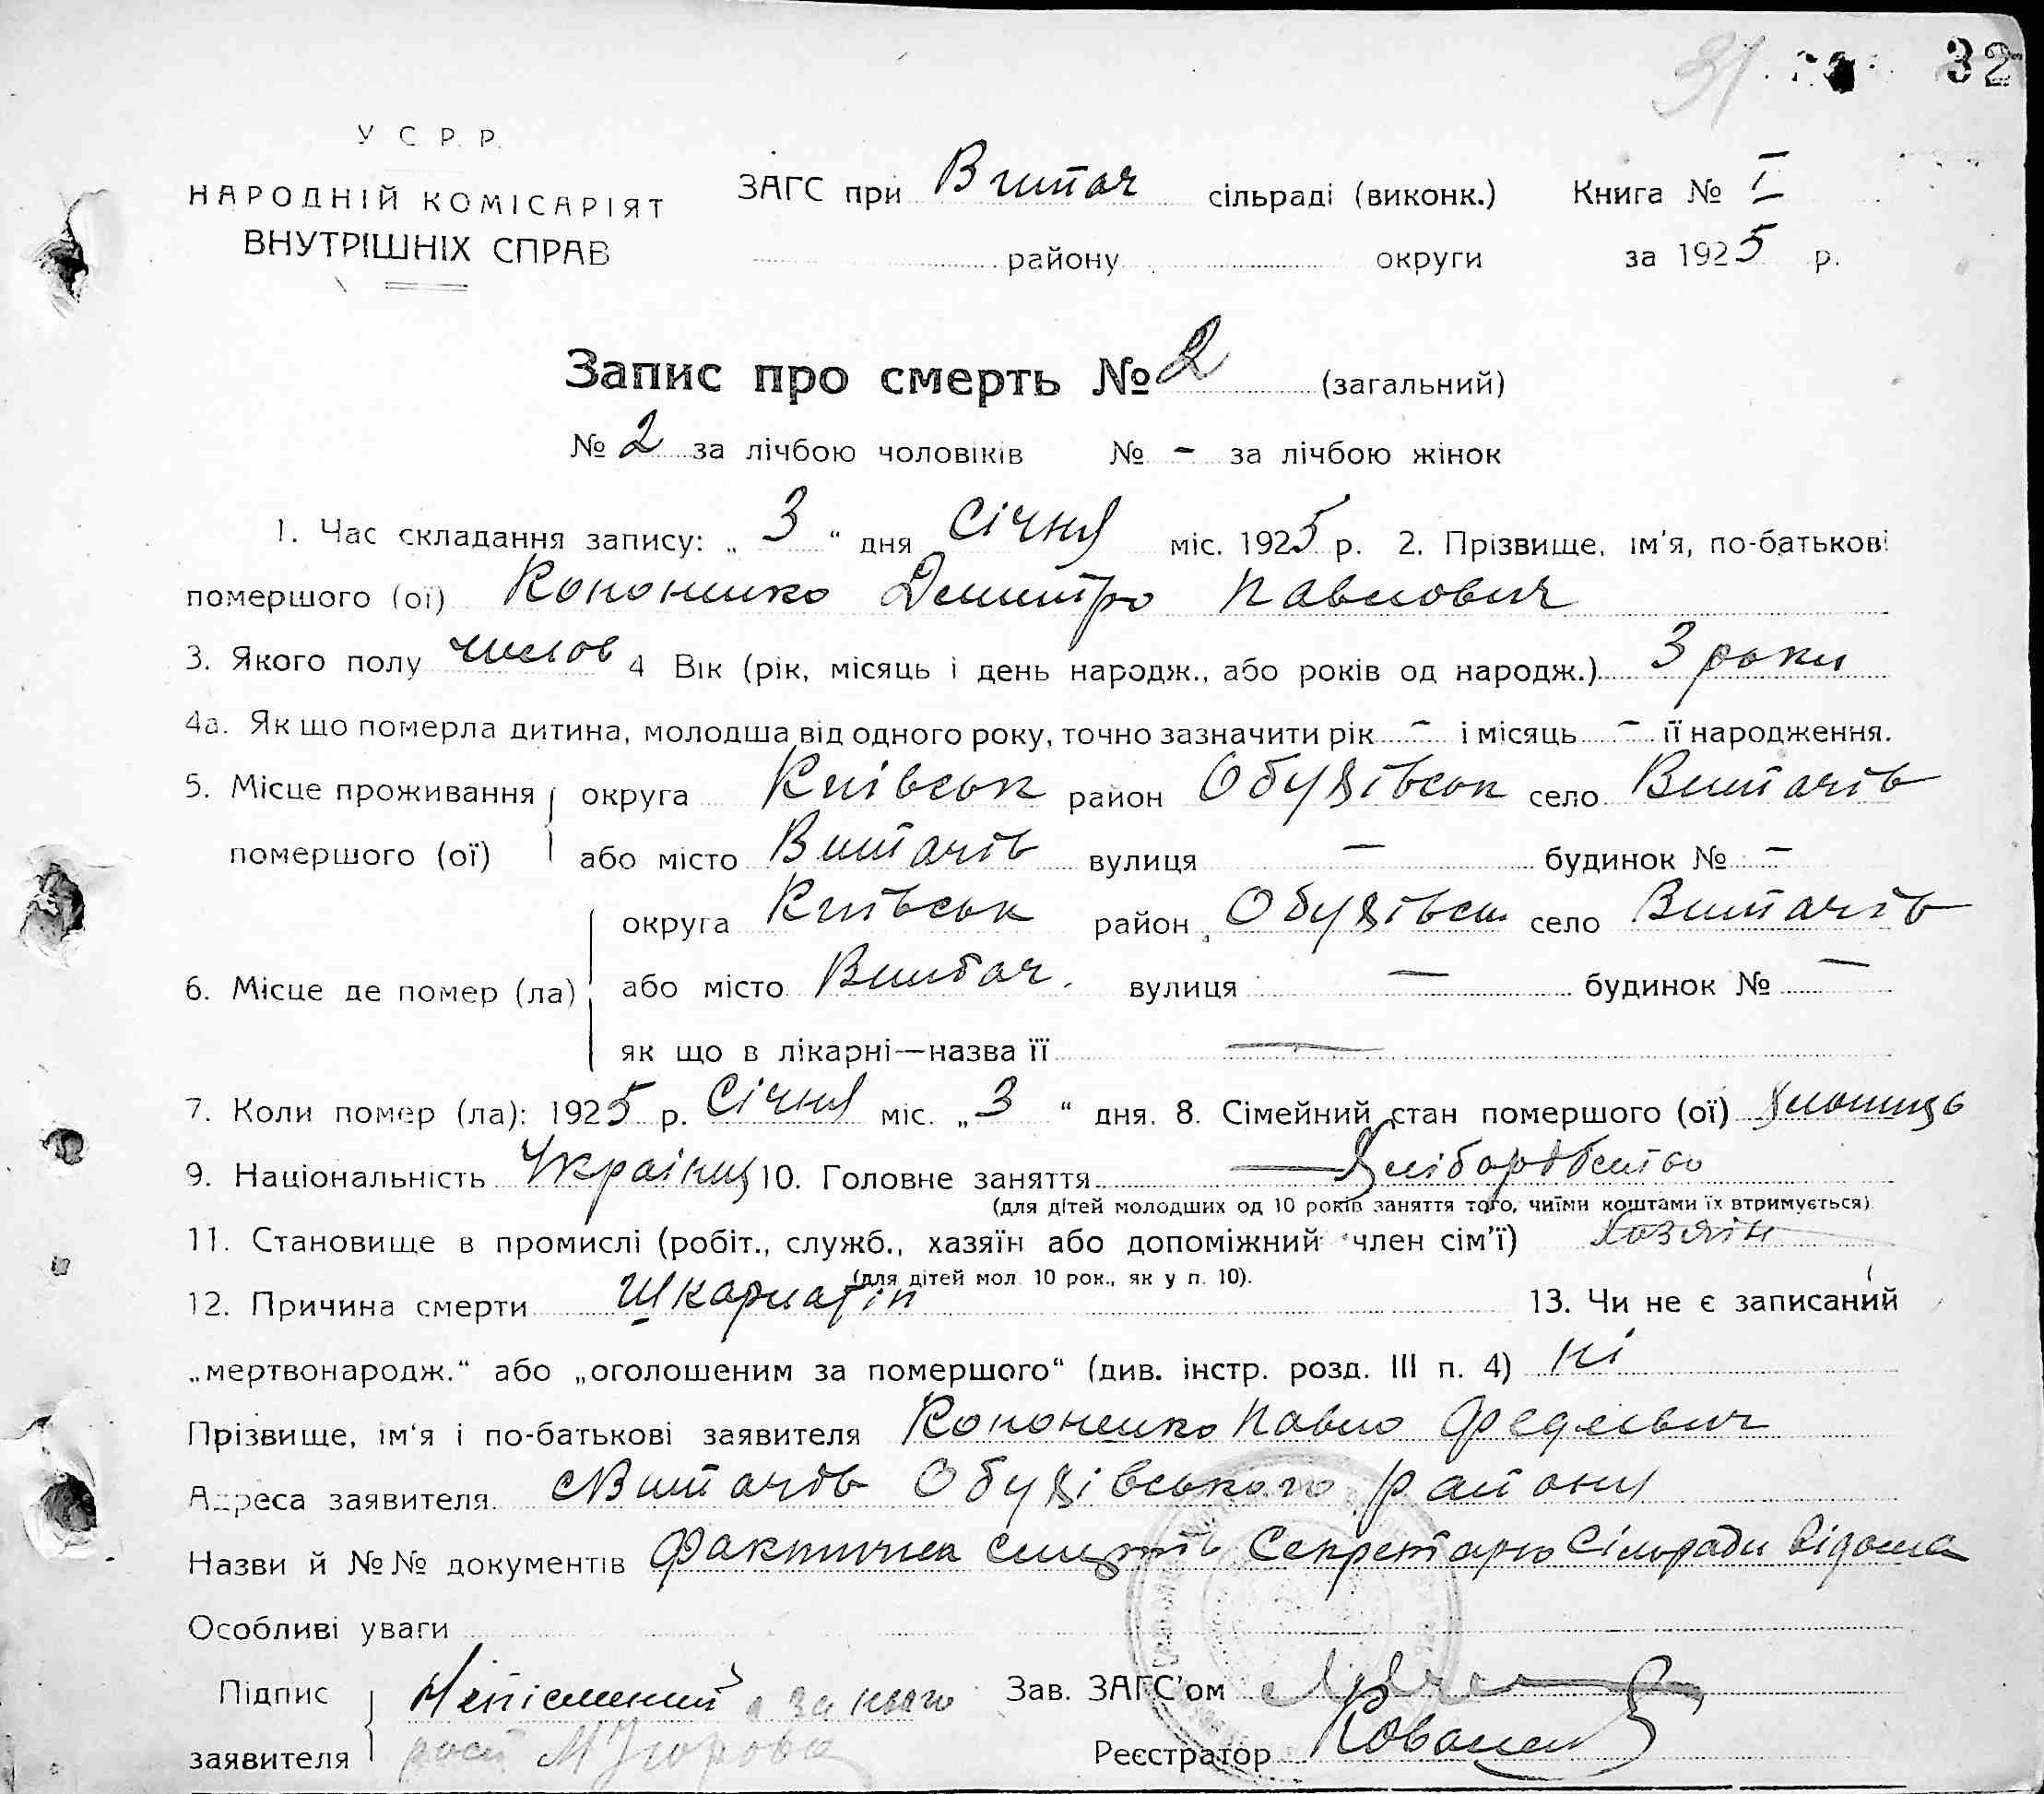 31 32
У С Р. Р.
НАРОДНІЙ КОМІСАРІЯТ
ВНУТРІШНІХ СПРАВ
ЗАГС при Витач сільраді (виконк.) Книга № I
району округи за 1925 р.
Запис про смерть № 2 (загальний)
№ 2 за лічбою чоловіків № - за лічбою жінок
1. Час складання запису: „ 3 " дня Січня міс. 1925 р. 2. Прізвище, ім'я, по-батькові
помершого (ої) Кононенко Демитро Павлович
3. Якого полу чилов 4 Вік (рік, місяць і день народж., або років од народж.) 3 роки
4а. Як що померла дитина, молодша від одного року, точно зазначити рік - і місяць - її народження.
5. Місце проживання округа Київськ район Обухівськ село Витачів
помершого (ої) або місто Витачів вулиця — будинок № —
округа Київськ район Обухівськ село Витачів
6. Місце де помер (ла) або місто Витач. вулиця — будинок № —
як що в лікарні—назва її —
7. Коли помер (ла): 1925 р. Січня міс. „ 3 " дня. 8. Сімейний стан помершого (ої) хлопиць
9. Національність Українц 10. Головне заняття — Хліборобство
(для дітей молодших од 10 років заняття того, чиїми коштами їх втримується)
11. Становище в промислі (робіт., служб., хазяїн або допоміжний член сім'ї) Хозяїн
(для дітей мол. 10 рок., як у п. 10).
12. Причина смерти Шкарлатін 13. Чи не є записаний
„мертвонародж." або „оголошеним за помершого" (див. інстр. розд. III п. 4) ні
Прізвище, ім'я і по-батькові заявителя Кононенко Павло
Адреса заявителя с Витачів Обухівського району
Назви й №№ документів Фактична смерть Секретарю Сільради відома
Особливі уваги
Підпис Непісменний а за нього Зав. ЗАГС'ом
заявителя росп Реєстратор Ковален